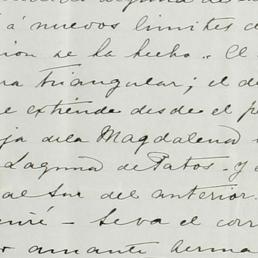 á nuevos limites d
ion se ha hecho. El
na triangular; el d
e extiende desde el p
ja dela Magdalena
Laguna de Patos. y e
al sur del anterior.
iré - leva el corr
amante herma